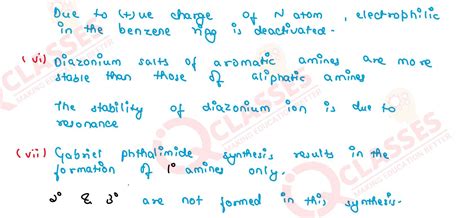 Due to (+)ve charge of N atom, electrophilic
in the benzene ring is deactivated.
(vi) Diazonium salts of aromatic amines are more
stable than those of aliphatic amines
The stability of diazonium ion is due to
resonance
(vii) Gabriel phthalimide synthesis results in the
formation of 1° amines only.
2° & 3° are not formed in this synthesis.
IQ CLASSES
MAKING EDUCATION BETTER
IQ CLASSES
MAKING EDUCATION BETTER